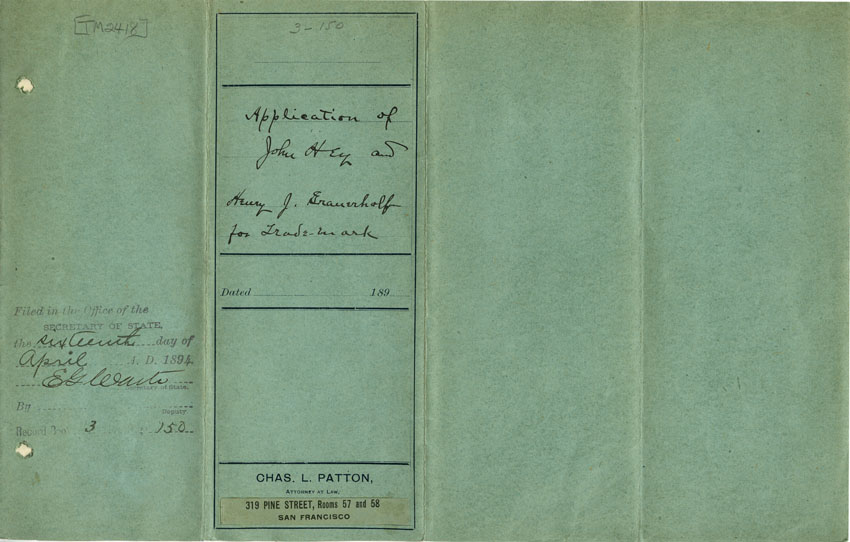 [TM2418]
Filed in the Office of the
SECRETARY OF STATE,
the sixteenth day of
April A. D. 1894
E G Waite
Secretary of State.
By
Deputy
Record 3 150
3-150
Application of
John Hey and
Henry J. Grauerholf
for Trade-mark
Dated 189
CHAS. L. PATTON,
ATTORNEY AT LAW,
319 PINE STREET, Rooms 57 and 58
SAN FRANCISCO